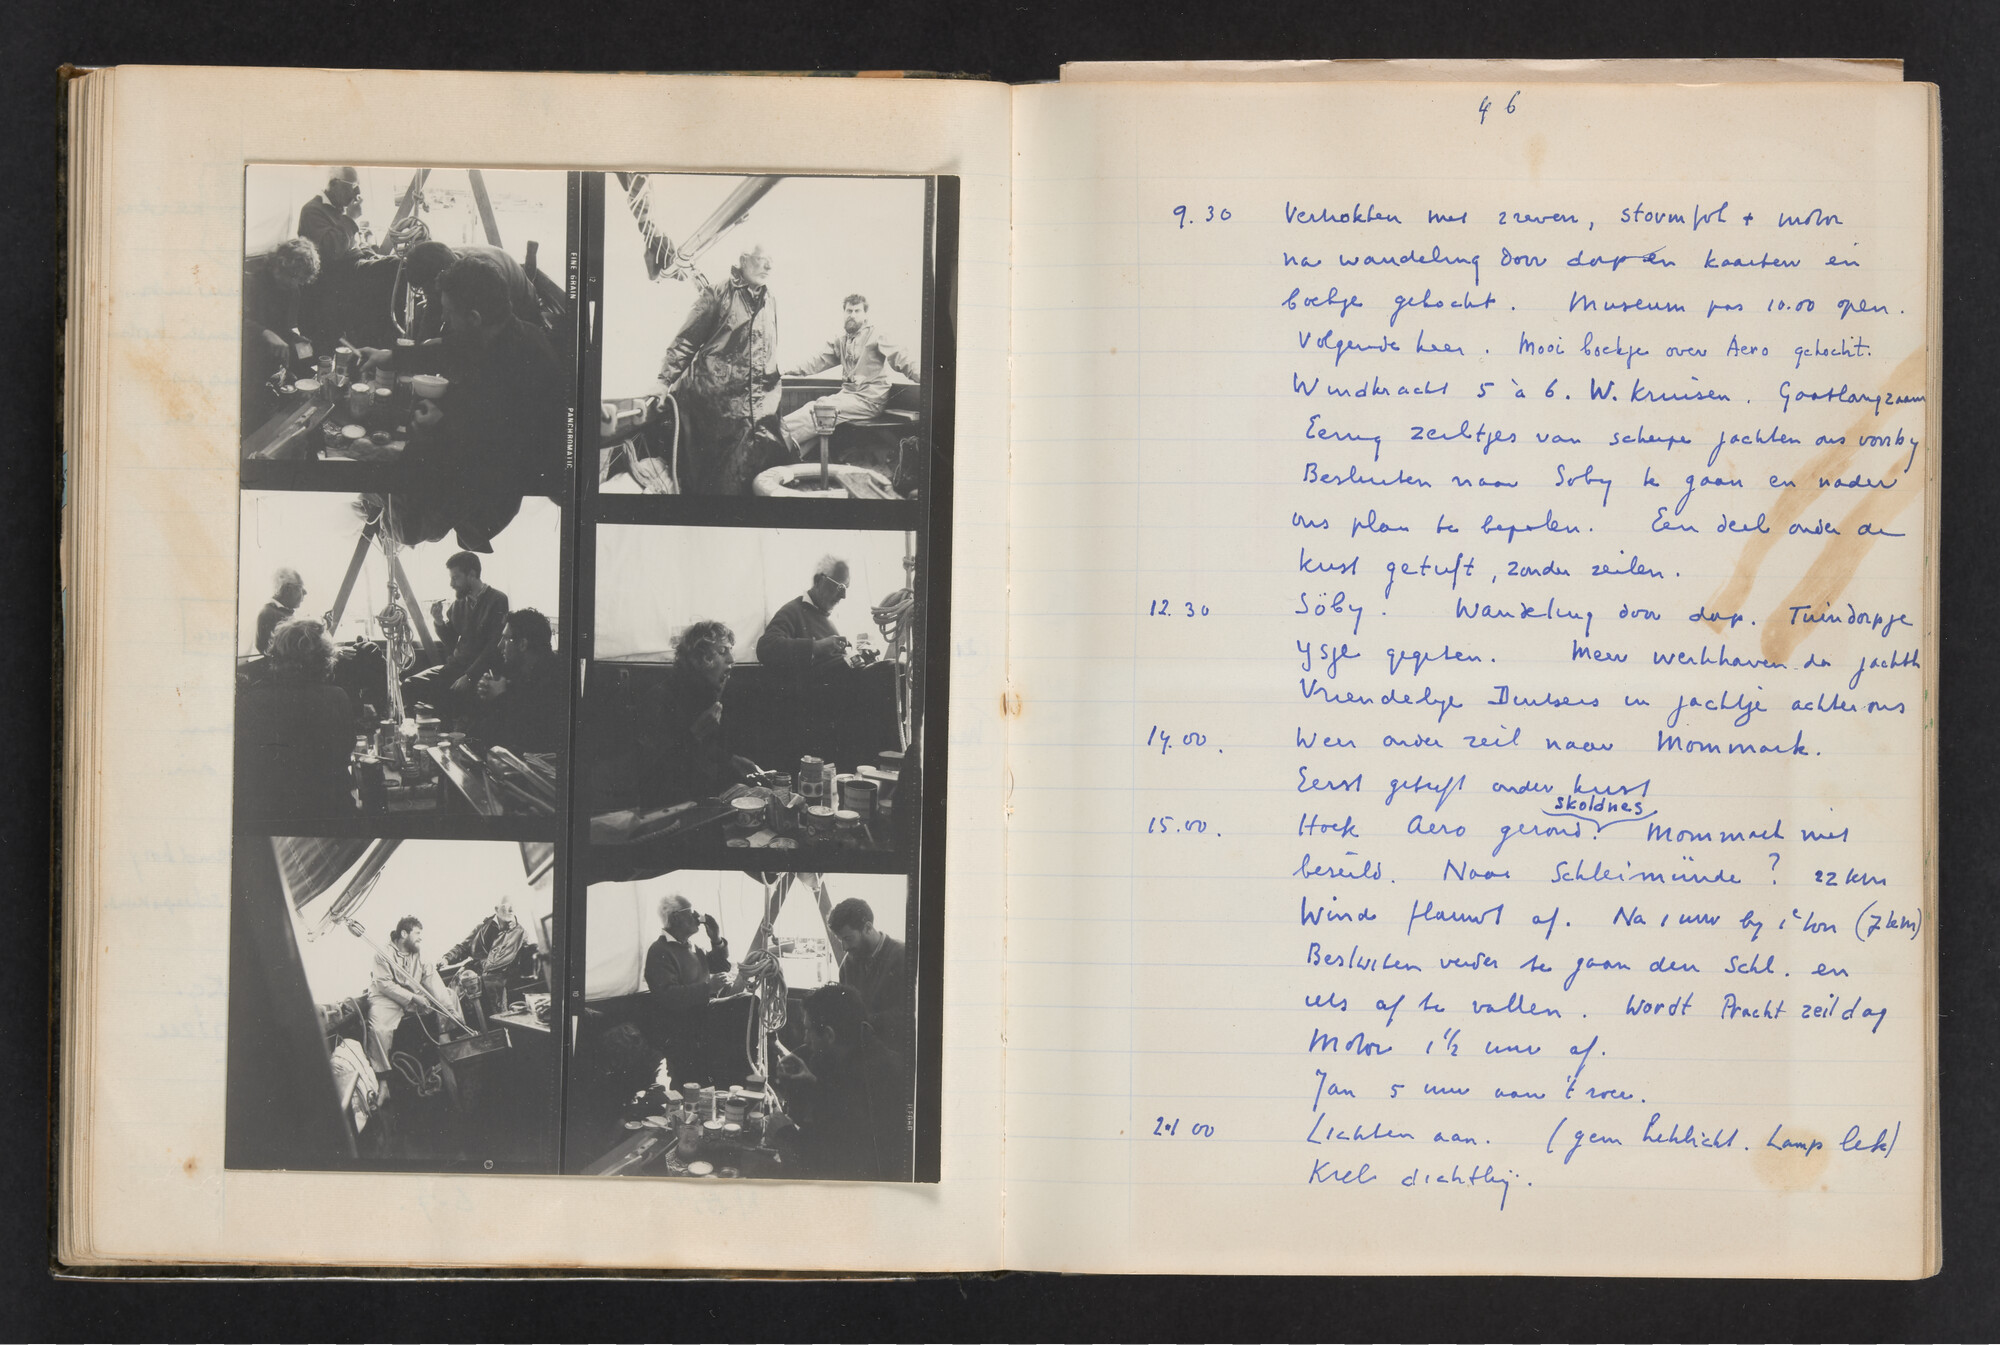 FINE GRAIN
PANCHROMATIC
12
11
10
46
9.30 Vertrokken met 2 reven, stormfok + motor
na wandeling door dorp en kaarten en
boekje gekocht. Museum pas 10.00 open.
Volgende keer. Mooi boekje over Aero gekocht.
Windkracht 5 à 6. W. Kruisen. Gaat langzaam
Eenig zeiltjes van scherpe jachten ons voorby
Besluiten naar Soby te gaan en nader
ons plan te bepalen. Een deel onder de
kust getuft, zonder zeilen.
12.30 Söby. Wandeling door dorp. Tuindorpje
Ysje gegeten. Meer werkhaven dan jachth
Vriendelyke Duitsers in jachtje achter ons
14.00. Weer onder zeil naar Mommark.
Eerst getuft onder kust
skoldnes
15.00. Hoek Aero gerond. Mommark niet
bezeild. Naar Schleimünde? 22 km
Wind flauwt af. Na 1 uur by 1e ton (7 km)
Besluiten verder te gaan dan Schl. en
iets af te vallen. Wordt Pracht zeildag
Motor 1 1/2 uur af.
Jan 5 uur aan 't roer.
21 00 Lichten aan. (geen heklicht. Lamp lek)
Kiel dichtbij.